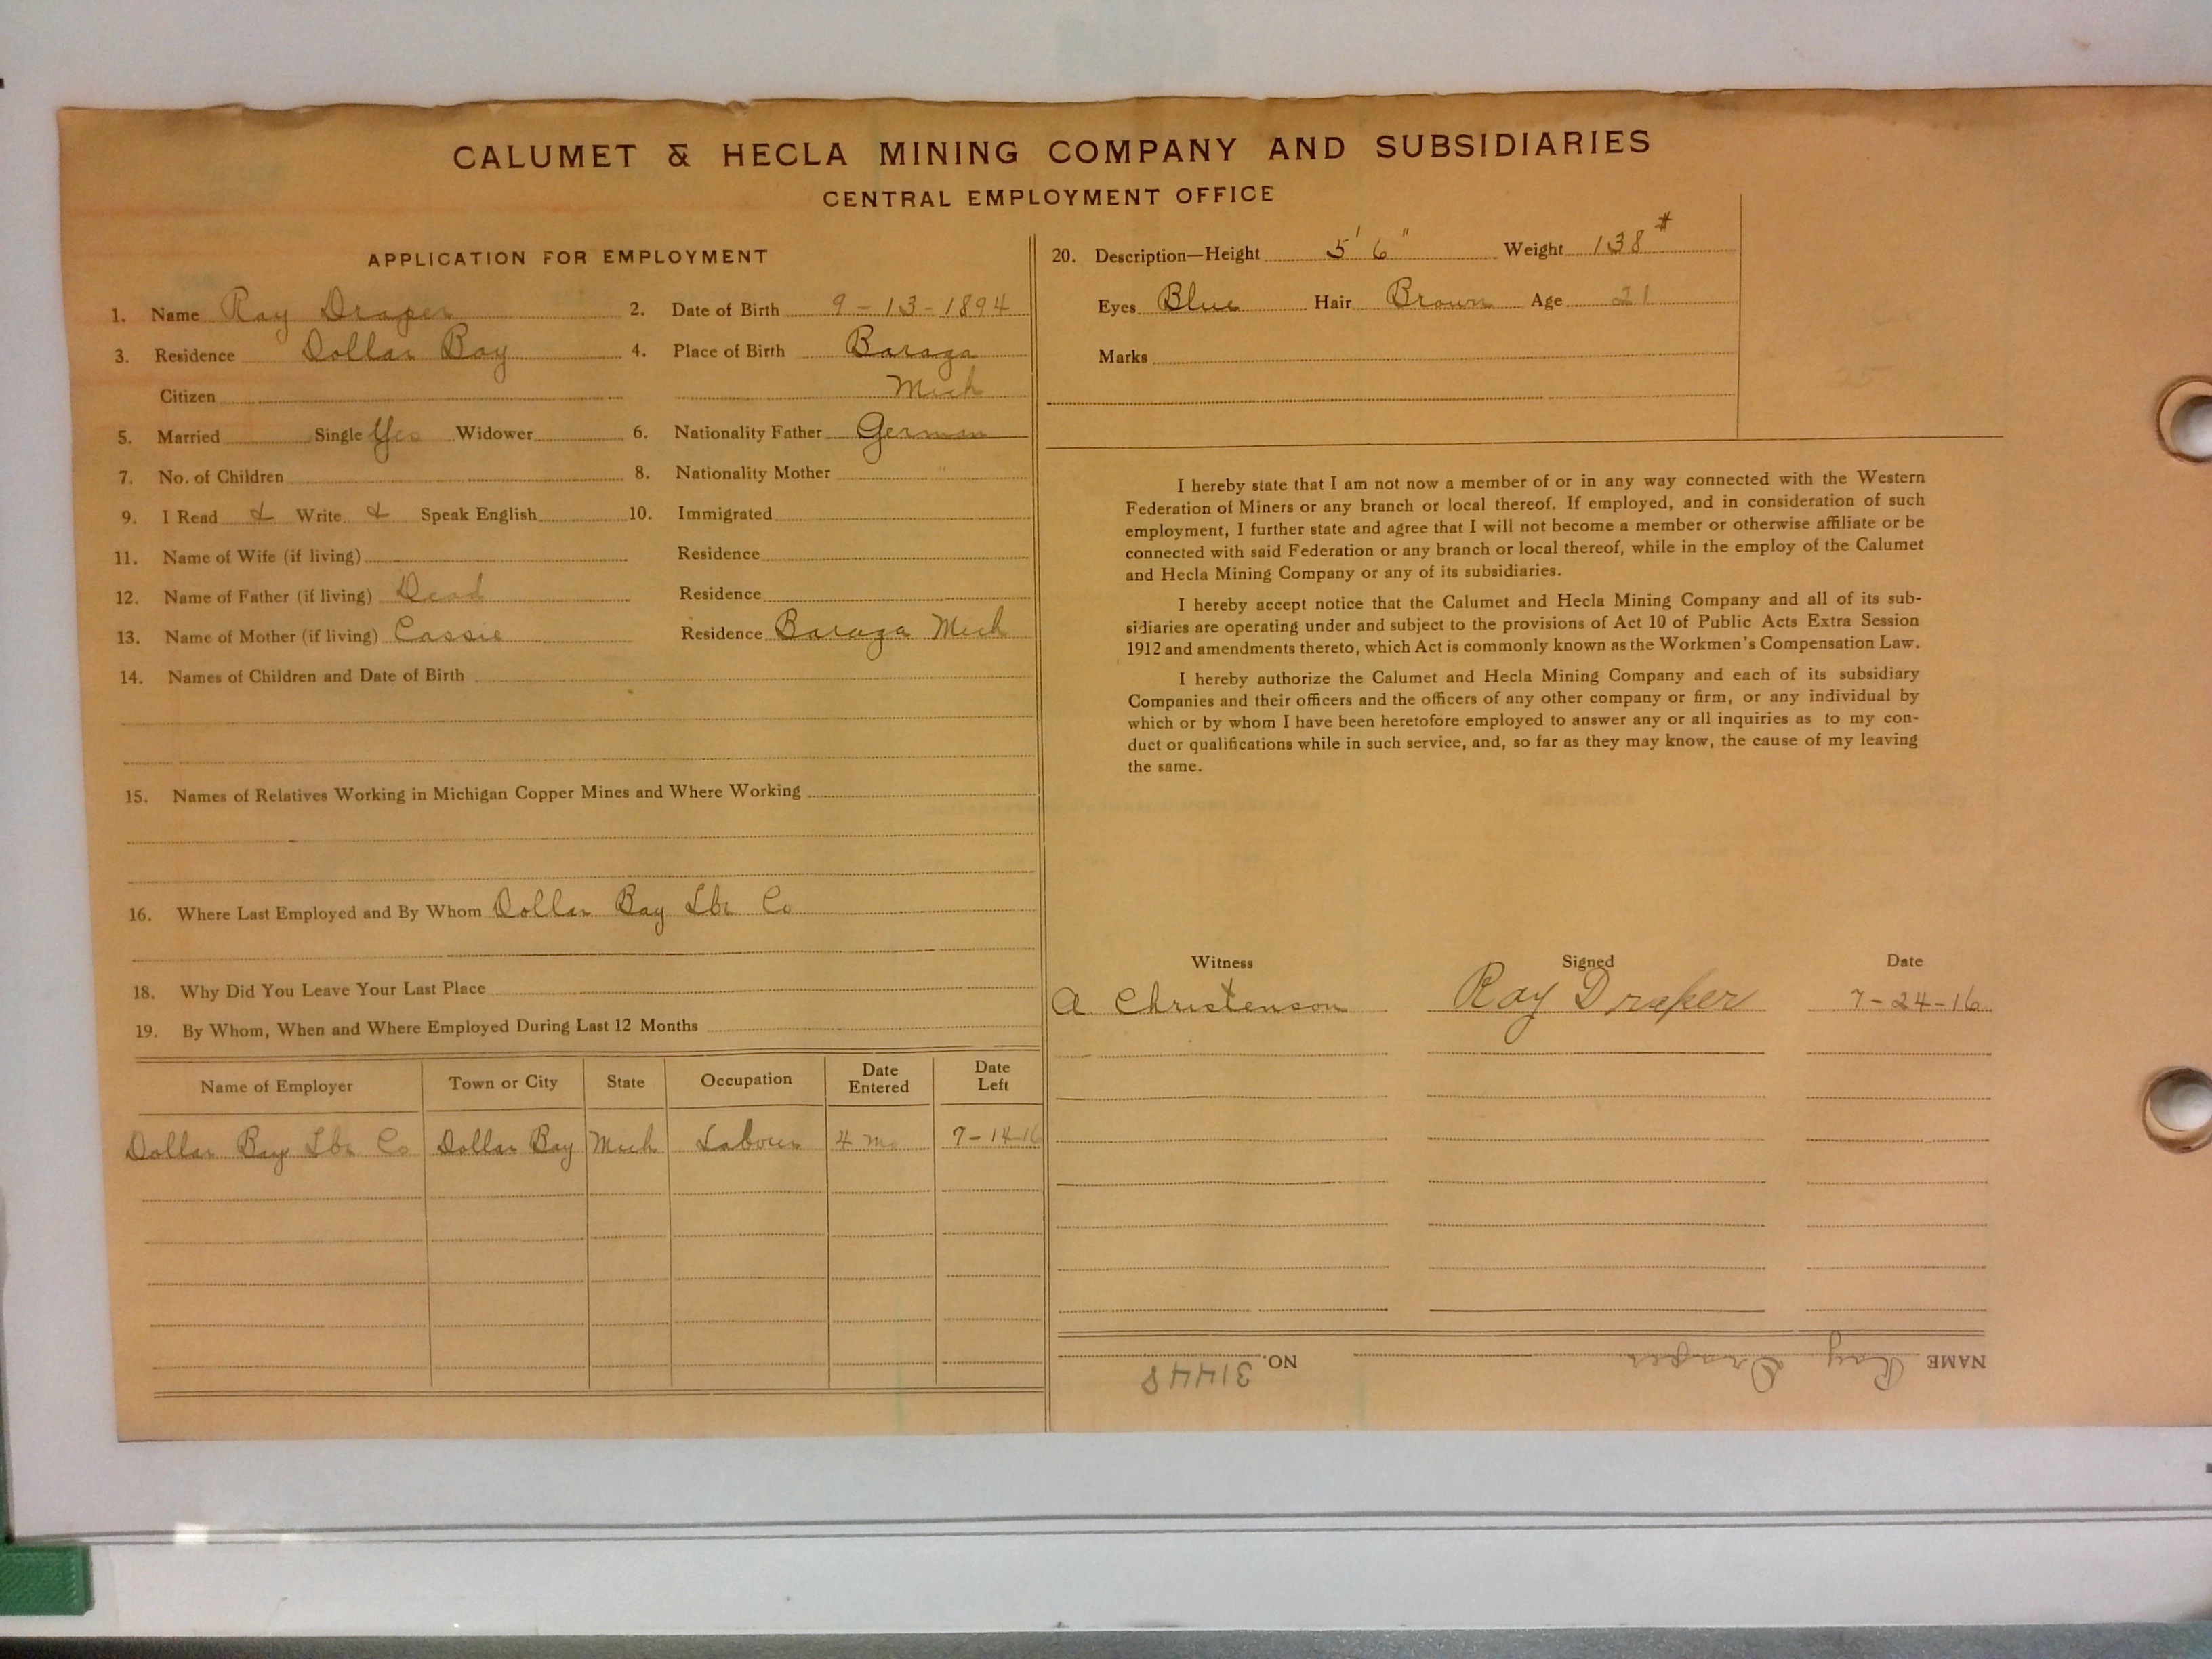 CALUMET & HECLA MINING COMPANY AND SUBSIDIARIES
CENTRAL EMPLOYMENT OFFICE
APPLICATION FOR EMPLOYMENT
1. Name Ray Draper 2. Date of Birth 9-13-1894
3. Residence Dollar Bay 4. Place of Birth Baraga
Citizen Mich
5. Married Single Yes Widower 6. Nationality Father German
7. No. of Children 8. Nationality Mother "
9. I Read & Write & Speak English 10. Immigrated
11. Name of Wife (if living) Residence
12. Name of Father (if living) Dead Residence
13. Name of Mother (if living) Cassie Residence Baraga Mich
14. Names of Children and Date of Birth
15. Names of Relatives Working in Michigan Copper Mines and Where Working
16. Where Last Employed and By Whom Dollar Bay Lbr Co
18. Why Did You Leave Your Last Place
19. By Whom, When and Where Employed During Last 12 Months
Name of Employer Town or City State Occupation Date Entered Date Left
Dollar Bay Lbr Co Dollar Bay Mich Laborer 4 mo 7-14-16
20. Description—Height 5' 6" Weight 138#
Eyes Blue Hair Brown Age 21
Marks
25
I hereby state that I am not now a member of or in any way connected with the Western
Federation of Miners or any branch or local thereof. If employed, and in consideration of such
employment, I further state and agree that I will not become a member or otherwise affiliate or be
connected with said Federation or any branch or local thereof, while in the employ of the Calumet
and Hecla Mining Company or any of its subsidiaries.
I hereby accept notice that the Calumet and Hecla Mining Company and all of its sub-
sidiaries are operating under and subject to the provisions of Act 10 of Public Acts Extra Session
1912 and amendments thereto, which Act is commonly known as the Workmen's Compensation Law.
I hereby authorize the Calumet and Hecla Mining Company and each of its subsidiary
Companies and their officers and the officers of any other company or firm, or any individual by
which or by whom I have been heretofore employed to answer any or all inquiries as to my con-
duct or qualifications while in such service, and, so far as they may know, the cause of my leaving
the same.
Witness Signed Date
A Christenson Ray Draper 7-24-16
NAME Ray Draper NO. 31448